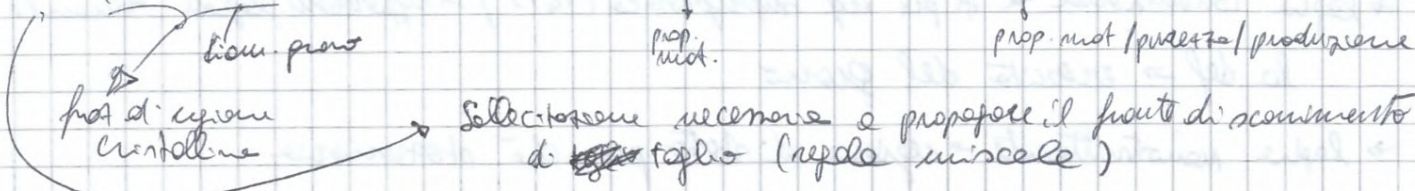 diam. grano
prop. mat.
prop. mat / purezza / produzione
fraz di regione cristallina
Sollecitazione necessaria a propagare il fronte di scorrimento
di taglio (regola miscele)